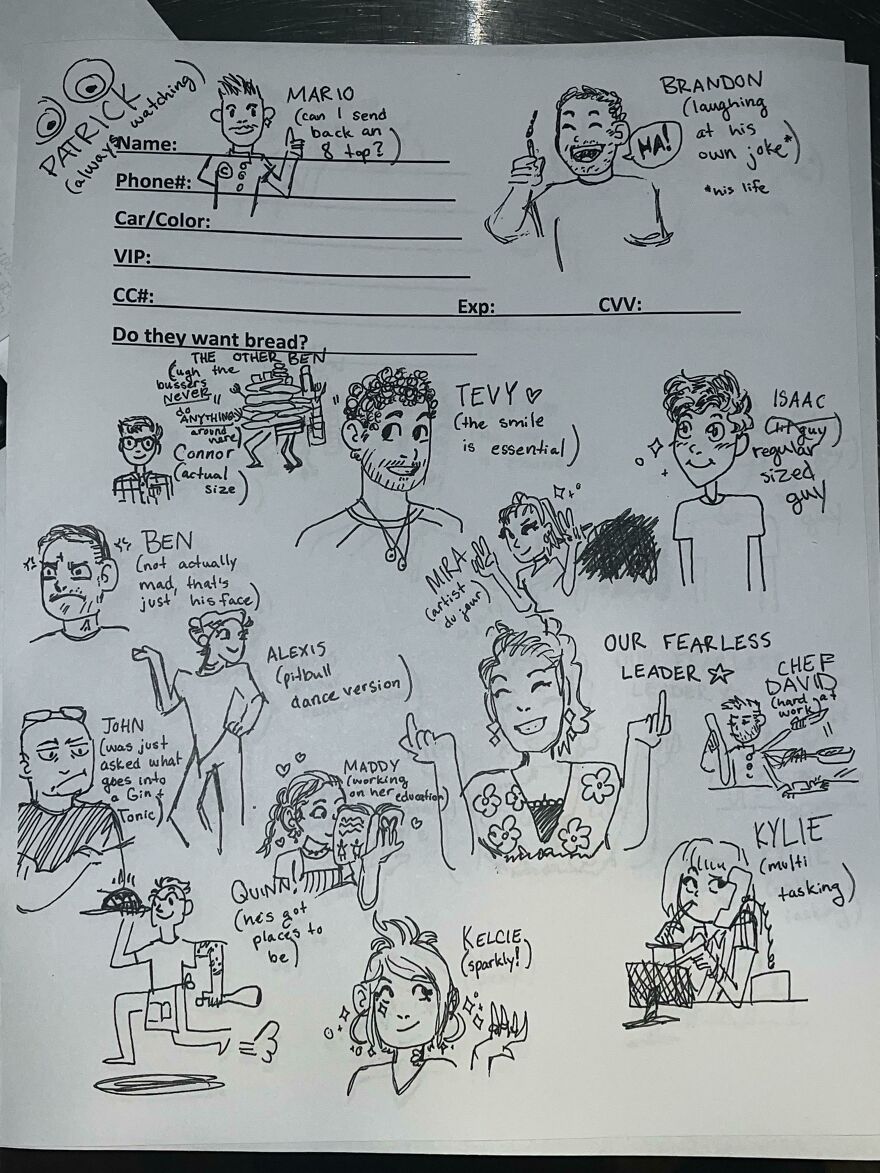 PATRICK
(always watching)
MARIO
(can I send
back an
8 top?)
BRANDON
(laughing
at his
own joke*)
*his life
HA!
Name:
Phone#:
Car/Color:
VIP:
CC#:
Exp:
CVV:
Do they want bread?
THE OTHER BEN
(ugh the
bussers
NEVER
do
ANYTHING
around
here)
Connor
(actual
size)
TEVY ♡
(the smile
is essential)
ISAAC
(lil guy)
regular
sized
guy
BEN
(not actually
mad, that's
just his face)
MIRA
(artist
du jour)
ALEXIS
(pitbull
dance version)
OUR FEARLESS
LEADER ☆
CHEF
DAVID
(hard at
work)
JOHN
(was just
asked what
goes into
a Gin +
Tonic)
MADDY
(working
on her education)
KYLIE
(multi
tasking)
QUINN!
(he's got
places to
be)
KELCIE
(sparkly!)